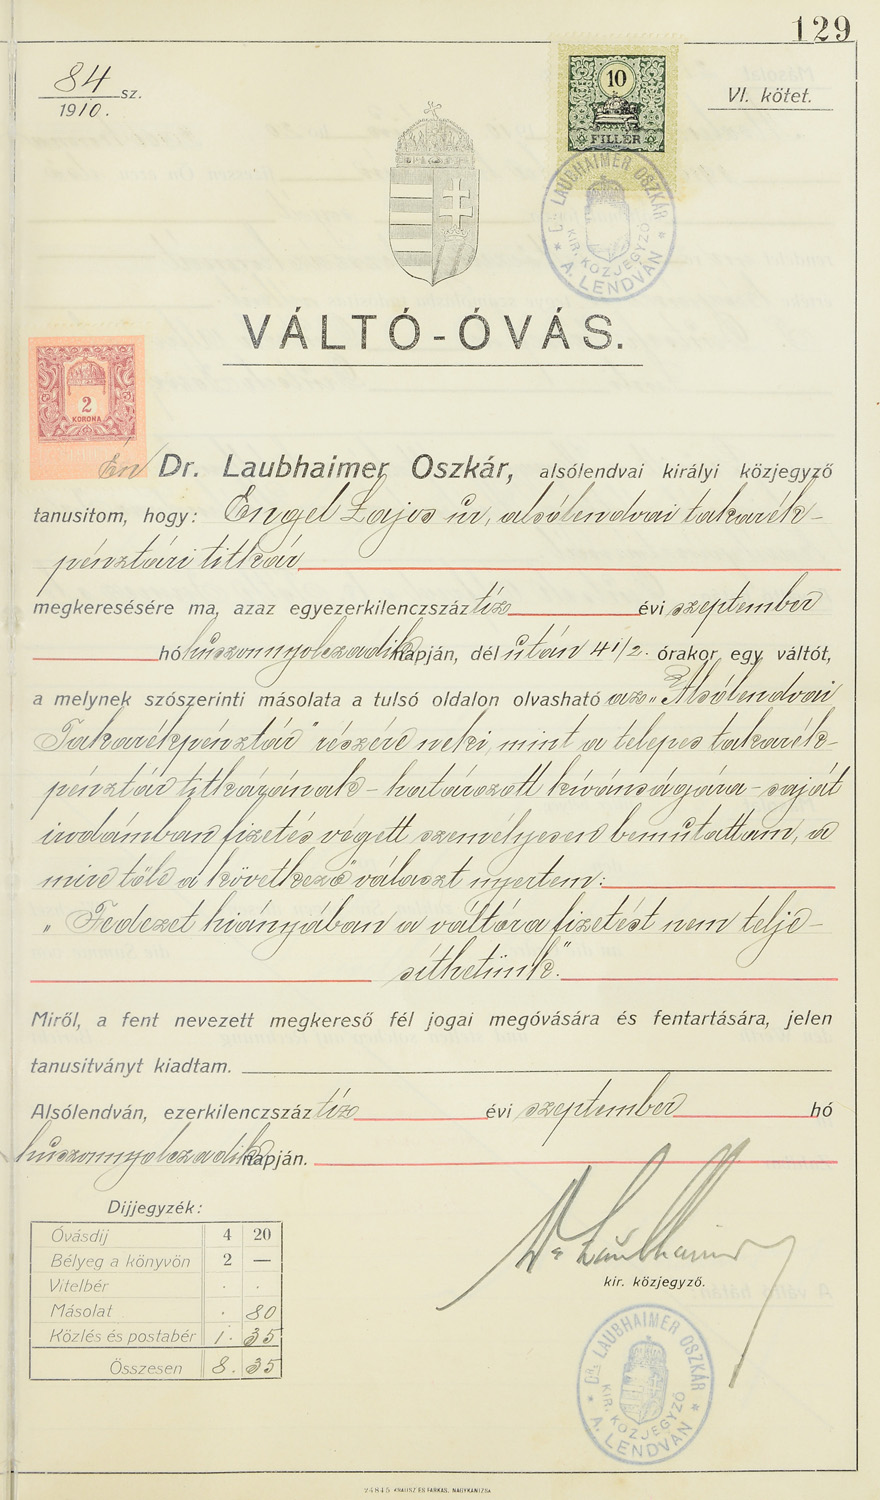 129
84 sz.
1910.
VI. kötet.
10
FILLÉR
DR. LAUBHAIMER OSZKÁR
KIR. KÖZJEGYZŐ
A. LENDVÁN
VÁLTÓ-ÓVÁS.
2
KORONA
Én Dr. Laubhaimer Oszkár, alsólendvai királyi közjegyző
tanusitom, hogy: Engel Lajos úr, alsólendvai takarék-
pénztári titkár
megkeresésére ma, azaz egyezerkilenczszáz tíz évi szeptember
hó huszonnyolczadik napján, dél után 4 1/2. órakor egy váltót,
a melynek szószerinti másolata a tulsó oldalon olvasható az „Alsólendvai
Takarékpénztár" részére neki, mint a telepes takarék-
pénztár titkárának - határozott kívánságára - saját
irodámban fizetés végett személyesen bemutattam, a
mire tőle a következő választ nyertem:
„Fedezet hiányában a váltóra fizetést nem telje-
síthetünk."
Miről, a fent nevezett megkereső fél jogai megóvására és fentartására, jelen
tanusitványt kiadtam.
Alsólendván, ezerkilenczszáz tíz évi szeptember hó
huszonnyolczadik napján.
Dijjegyzék:
Óvásdij 4 20
Bélyeg a könyvön 2 —
Vitelbér . .
Másolat . 80
Közlés és postabér 1. 35
Összesen 8. 35
Dr Laubhaimer
kir. közjegyző.
DR. LAUBHAIMER OSZKÁR
KIR. KÖZJEGYZŐ
A. LENDVÁN
24845 KRAUSZ ÉS FARKAS, NAGYKANIZSA